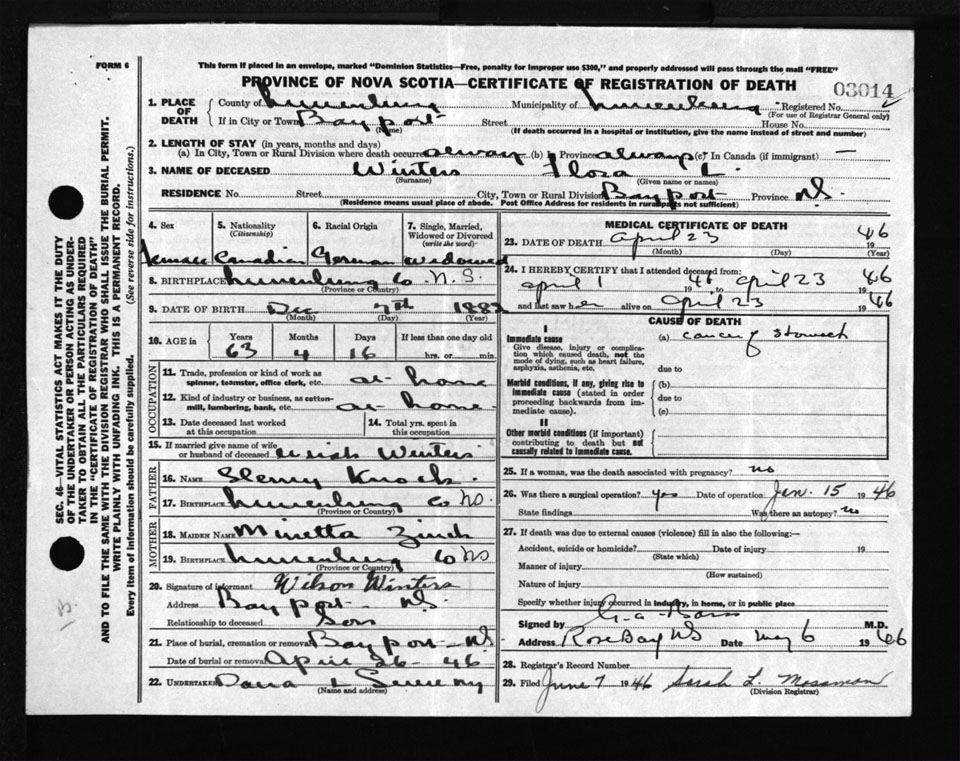 FORM 6
This form if placed in an envelope, marked "Dominion Statistics—Free, penalty for improper use $300," and properly addressed will pass through the mail "FREE"
PROVINCE OF NOVA SCOTIA—CERTIFICATE OF REGISTRATION OF DEATH
03014
1. PLACE OF DEATH
County of Lunenburg Municipality of Lunenburg Registered No.
(For use of Registrar General only)
If in City or Town Bayport Street House No.
(Name) (If death occurred in a hospital or institution, give the name instead of street and number)
2. LENGTH OF STAY (in years, months and days)
(a) In City, Town or Rural Division where death occurred always (b) In Province always (c) In Canada (if immigrant) —
3. NAME OF DECEASED Winters Flora L.
(Surname) (Given name or names)
RESIDENCE No. Street City, Town or Rural Division Bayport Province N.S.
(Residence means usual place of abode. Post Office Address for residents in rural parts not sufficient)
4. Sex 5. Nationality (Citizenship) 6. Racial Origin 7. Single, Married, Widowed or Divorced (write the word)
Female Canadian German widowed
8. BIRTHPLACE Lunenburg Co N.S.
(Province or Country)
9. DATE OF BIRTH Dec 7th 1882
(Month) (Day) (Year)
10. AGE in Years Months Days If less than one day old
63 4 16 hrs. or min.
OCCUPATION
11. Trade, profession or kind of work as spinner, teamster, office clerk, etc. at home
12. Kind of industry or business, as cotton-mill, lumbering, bank, etc. at home
13. Date deceased last worked at this occupation 14. Total yrs. spent in this occupation
15. If married give name of wife or husband of deceased Winters
FATHER
16. NAME Henry Knock
17. BIRTHPLACE Lunenburg Co NS.
(Province or Country)
MOTHER
18. MAIDEN NAME Minetta Zinck
19. BIRTHPLACE Lunenburg Co NS
(Province or Country)
20. Signature of informant Wilson Winters
Address Bayport N.S.
Relationship to deceased Son
21. Place of burial, cremation or removal Bayport N.S.
Date of burial or removal April 26 - 46
22. UNDERTAKER
(Name and address)
MEDICAL CERTIFICATE OF DEATH
23. DATE OF DEATH April 23 1946
(Month) (Day)
24. I HEREBY CERTIFY that I attended deceased from:
April 1 1946 to April 23 1946
and last saw her alive on April 23 1946
CAUSE OF DEATH
I
Immediate cause (a) cancer of stomach
Give disease, injury or complication which caused death, not the mode of dying, such as heart failure, asphyxia, asthenia, etc. due to
Morbid conditions, if any, giving rise to immediate cause (stated in order proceeding backwards from immediate cause). (b)
due to
(c)
II
Other morbid conditions (if important) contributing to death but not causally related to immediate cause.
25. If a woman, was the death associated with pregnancy? no
26. Was there a surgical operation? yes Date of operation Jan. 15 1946
State findings Was there an autopsy? no
27. If death was due to external causes (violence) fill in also the following:—
Accident, suicide or homicide? Date of injury 19
(State which)
Manner of injury
(How sustained)
Nature of injury
Specify whether injury occurred in industry, in home, or in public place
Signed by M.D.
Address Rose Bay NS Date May 6 1946
28. Registrar's Record Number
29. Filed June 7 1946 Sarah L. Mossman
(Division Registrar)
SEC. 46—VITAL STATISTICS ACT MAKES IT THE DUTY
OF THE UNDERTAKER OR PERSON ACTING AS UNDER-
TAKER TO OBTAIN ALL THE PARTICULARS REQUIRED
IN THE "CERTIFICATE OF REGISTRATION OF DEATH"
AND TO FILE THE SAME WITH THE DIVISION REGISTRAR WHO SHALL ISSUE THE BURIAL PERMIT.
WRITE PLAINLY WITH UNFADING INK. THIS IS A PERMANENT RECORD.
Every item of information should be carefully supplied. (See reverse side for instructions.)